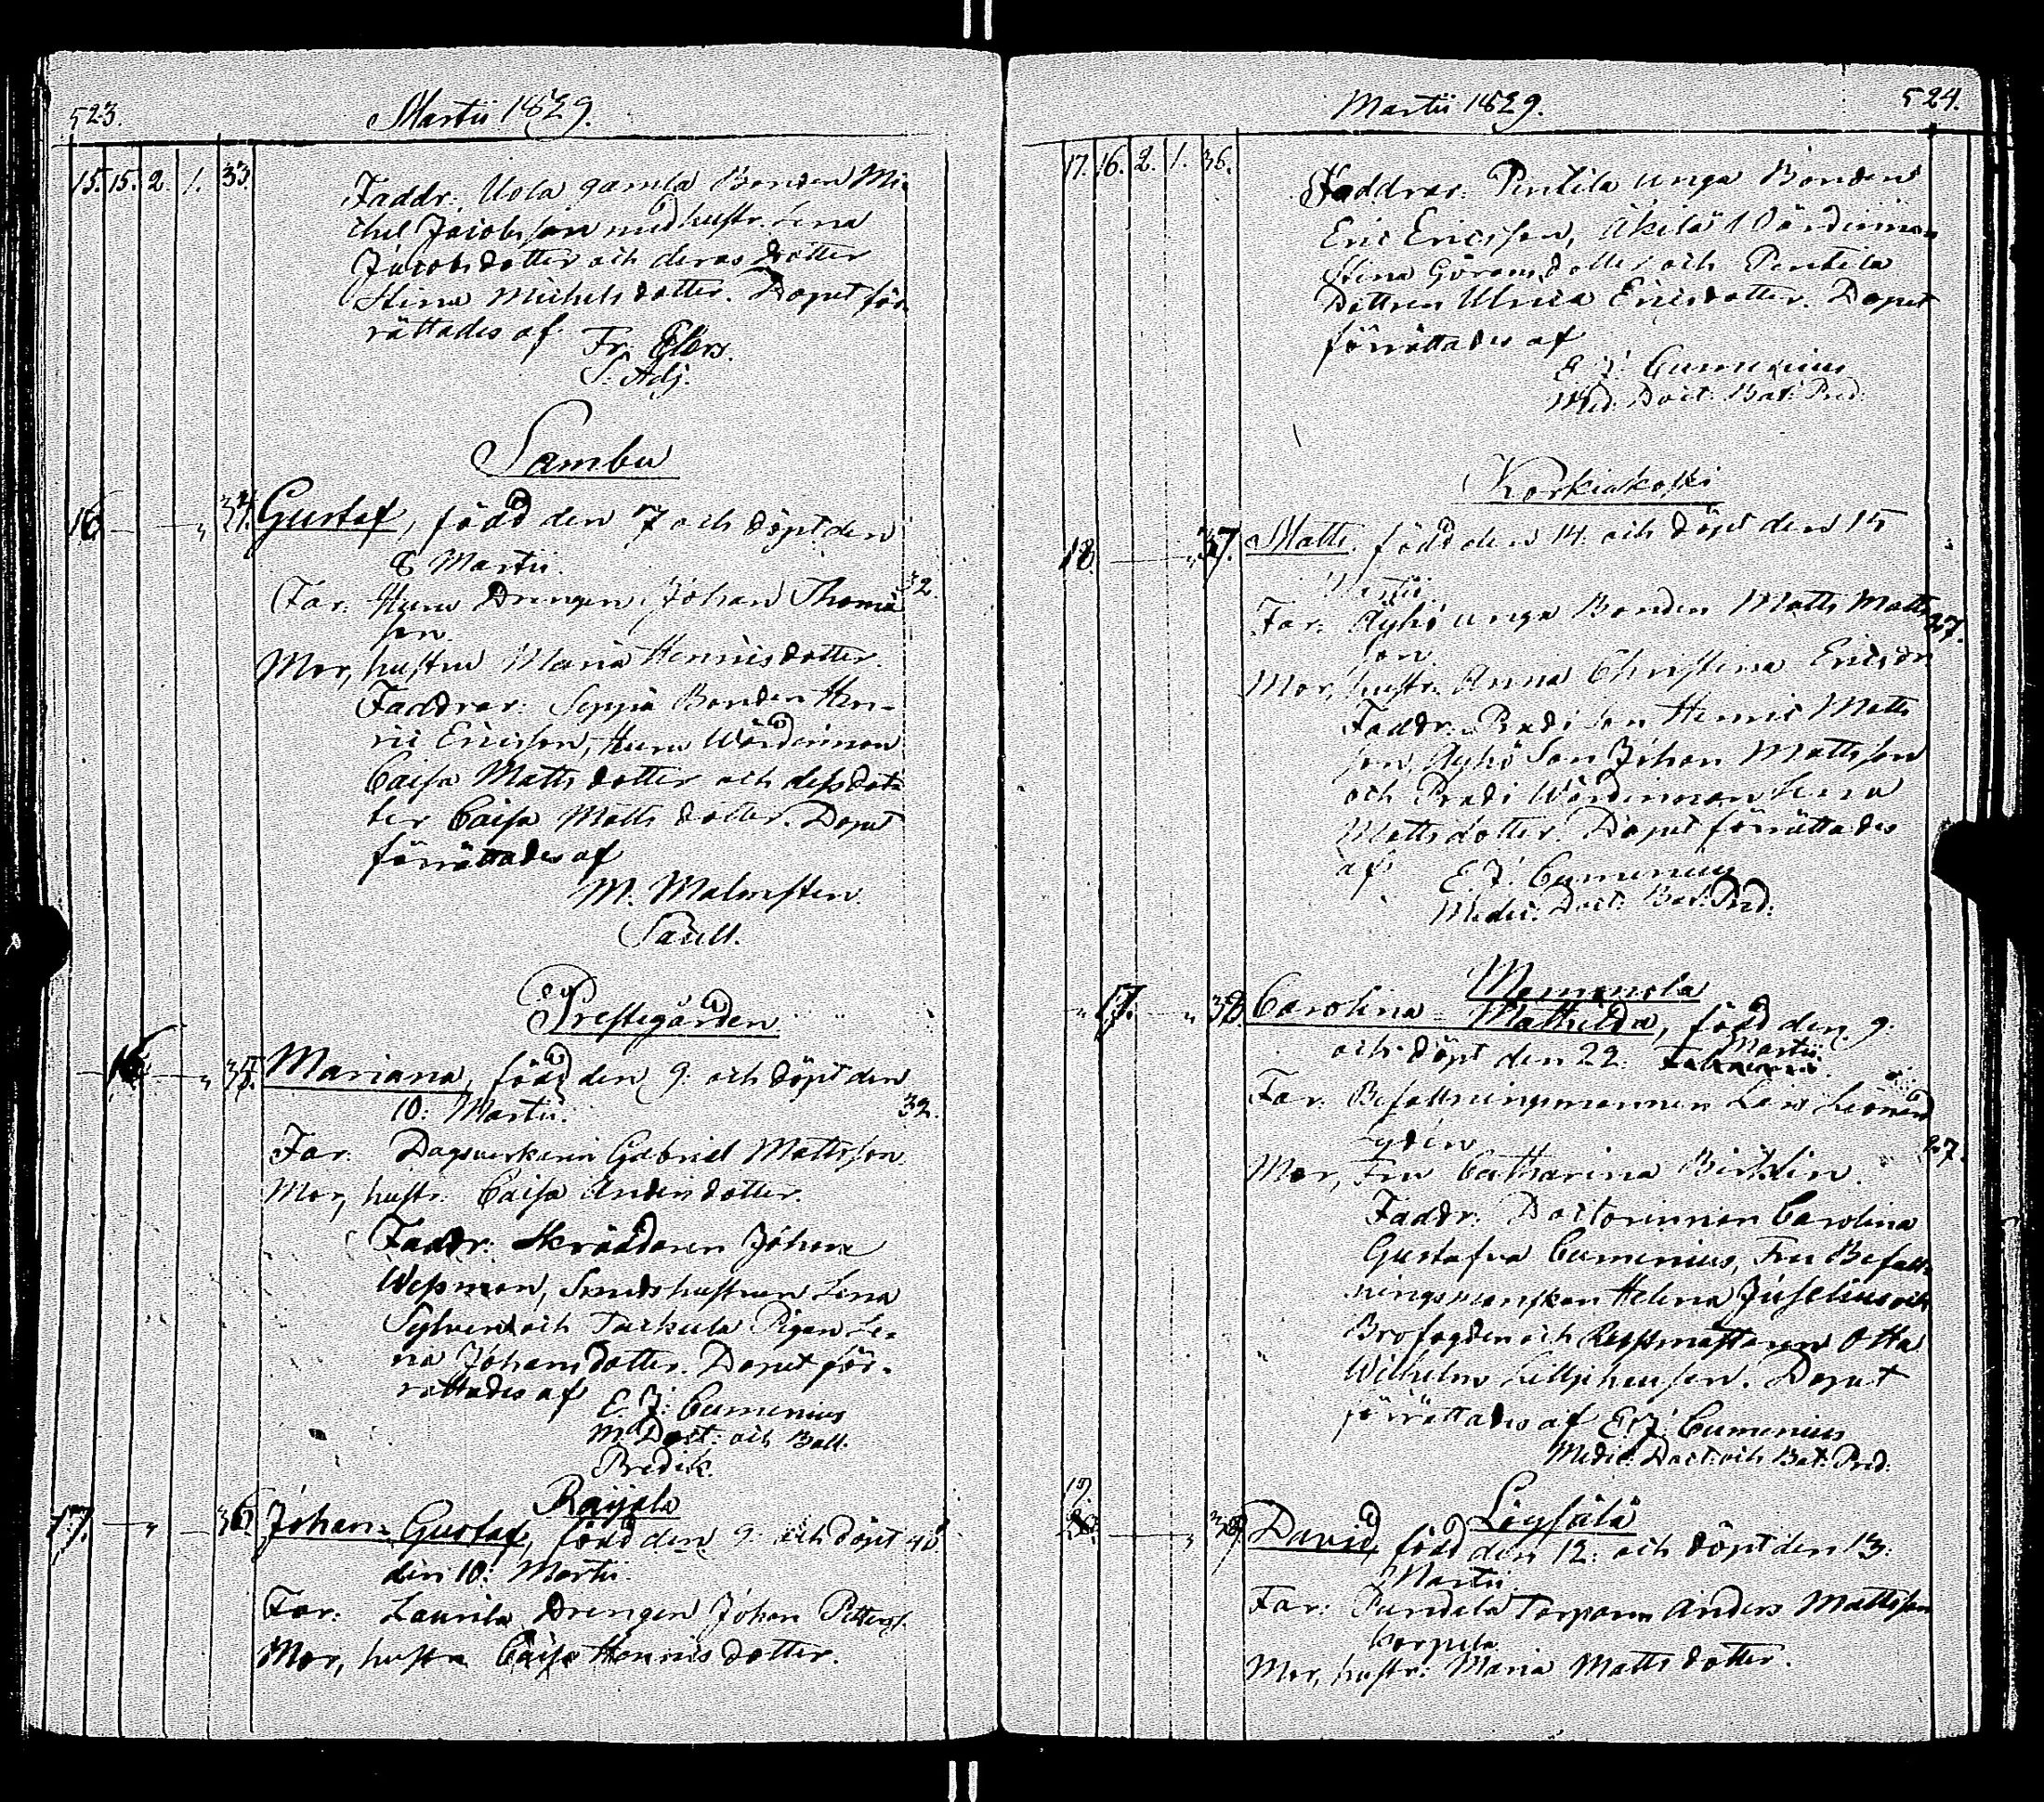 523.
Martii 1829.
15. 15. 2. 1. 33.
Faddr: Uola gamla Bonden Mi-
chel Jacobsson med hustr. Lena
Jacobsdotter och deras dotter
Stina Michelsdotter. Dopet för-
rättades af Fr. Elers.
S. Adj.
Sambu
16 — — „ 34. Gustaf, född den 7 och döpt den
8 Martii. 32.
Far: Huru Drengen Johan Thomas
son.
Mor, hustru Maria Henricsdotter.
Faddrar: Seppä Bonden Hen-
ric Ericsson, Huru Wärdinnan
Caisa Matts dotter och dess dot-
ter Caisa Matts dotter. Dopet
förrättades af
M. Malmsten.
Sacell.
Prestegården
— 16 — „ 35. Mariana, född den 9. och döpt den
10: Martii. 32.
Far: Dagsverkarin Gabriel Mattsson.
Mor, hustr: Caisa Anders dotter.
Faddr: Skräddaren Johan
Wessman, Smeds hustrun Lena
Sylven och Tackula Pigan Le-
na Johansdotter. Dopet för-
rättades af E. J. Cumenius
M. Doct: och Batt.
Predik.
Raijala
17. — „ — 36. Johan Gustaf, född den 9. och döpt 40
den 10: Martii.
Far: Laurila Drengen Johan Petterss.
Mor, hustru Caisa Henrics dotter.
Martii 1829.
524.
17. 16. 2. 1. 36.
Faddrar: Pentila unga Bonden
Eric Ericsson, Äkelä Värdinnan
Stina Göransdotter och Pentila
Dottren Ulrica Ericsdotter. Dopet
förrättades af
E J. Cumenius
Med: Doct: Bat: Pred:
Korkiakoski
18. — „ 37. Matts, född den 14. och döpt den 15
Martii.
Far: Äyhö unga Bonden Matts Matts 27.
son.
Mor, hustr: Anna Christina Ericsdr
Faddr: Pradi Son Henric Matts
son, Äyhö Son Johan Mattsson
och Pradi Wärdinnan Lena
Mattsdotter. Dopet förrättades
af E. J. Cumenius
Medic: Doct: Bat: Pred:
Mommola
„ 17. „ 38. Carolina Mathilda, född den 9.
och döpt den 22. Martii
Far: Befallningsmannen Lars Leonard
27.
Mor, Fru Catharina
Faddr: Doctorinnan Carolina
Gustafva Cumenius, Fru Befall-
ningsmanskan Helena Juselius och
Brofogden och Otto
Wilhelm Lilljehensen. Dopet
förrättades af E. J. Cumenius
Medic: Doct: och Bat: Pred:
Löysälä
19. — „ 39. David, född den 12: och döpt den 13:
Martii.
Far: Pundala Torparen Anders Mattsson
Korpela
Mor, hustr: Maria Matts dotter.